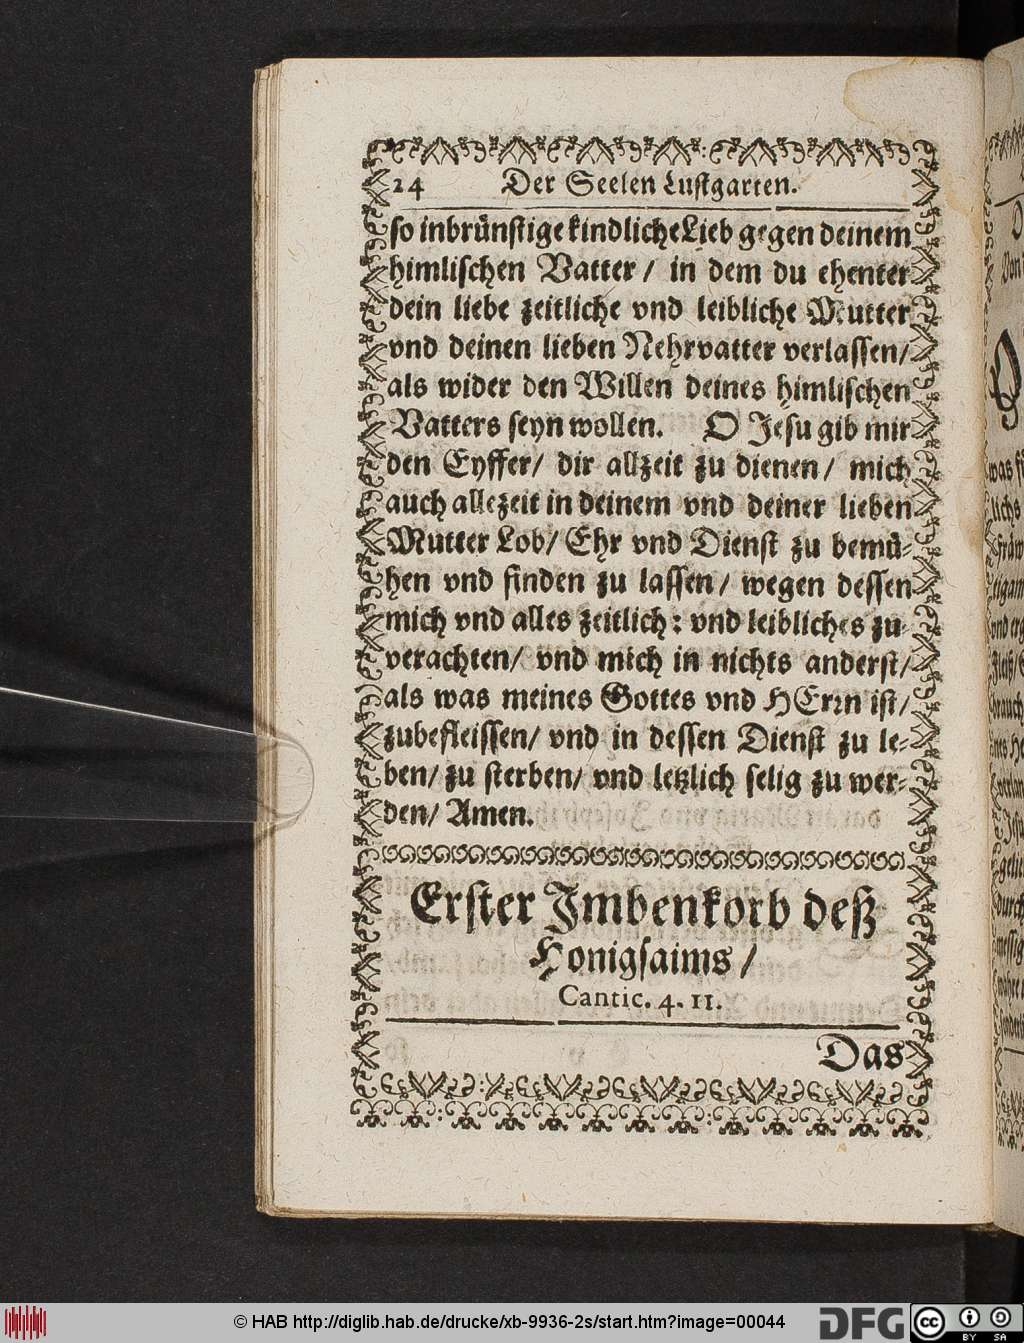 24 Der Seelen Lustgarten.
so inbrünstige kindliche Lieb gegen deinem
himlischen Vatter / in dem du ehenter
dein liebe zeitliche vnd leibliche Mutter
vnd deinen lieben Nehrvatter verlassen/
als wider den Willen deines himlischen
Vatters seyn wollen. O Jesu gib mir
den Eyffer/ dir allzeit zu dienen/ mich
auch allezeit in deinem vnd deiner lieben
Mutter Lob/ Ehr vnd Dienst zu bemü-
hen vnd finden zu lassen/ wegen dessen
mich vnd alles zeitlich: vnd leibliches zu-
verachten/ vnd mich in nichts anderst/
als was meines Gottes vnd HErrn ist/
zubefleissen/ vnd in dessen Dienst zu le-
ben/ zu sterben/ vnd letzlich selig zu wer-
den/ Amen.
Erster Imbenkorb deß
Honigsaims /
Cantic. 4. 11.
Das
© HAB http://diglib.hab.de/drucke/xb-9936-2s/start.htm?image=00044
DFG
cc
BY SA